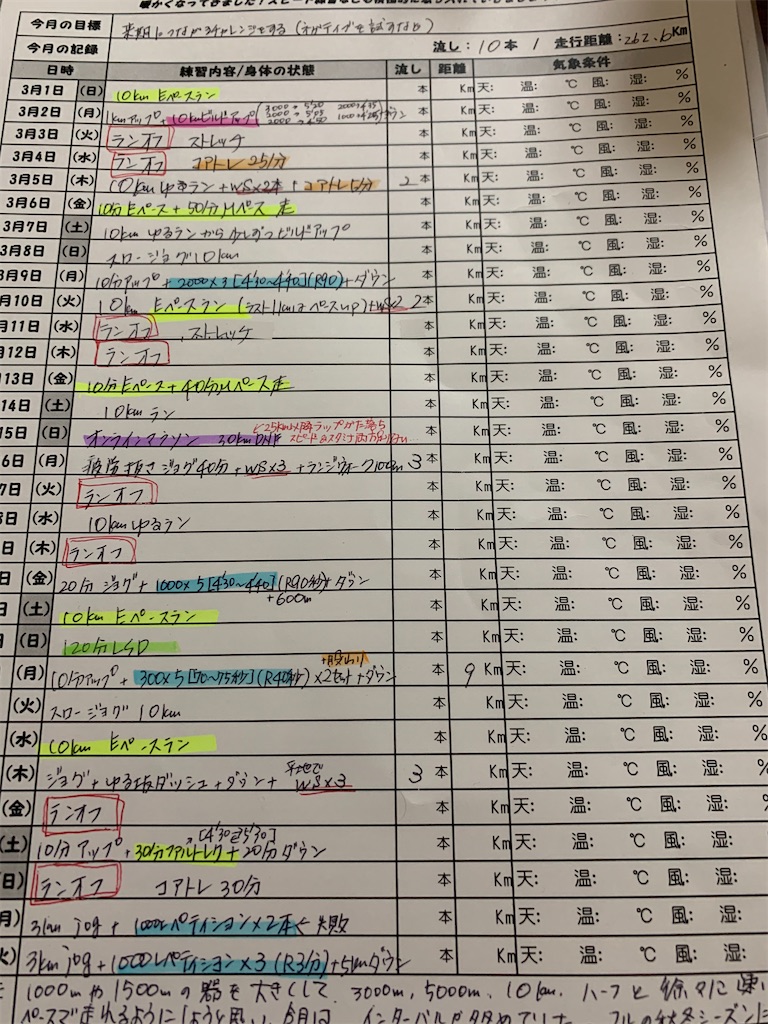 暖かくなってきました！スピード練習なども積極的に取り入れていきましょう
今月の目標 来期につながるチャレンジをする（ネガティブを試すなど）
今月の記録 流し：10本 / 走行距離：262.6Km
日時 練習内容/身体の状態 流し 距離 気象条件
3月1日 (日) 10km Eペースラン 本 Km 天: 温: ℃ 風: 湿: %
3月2日 (月) 1kmアップ+10kmビルドアップ 3000→5'20 2000→ 2000→4'50 ダウン 本 Km 天: 温: ℃ 風: 湿: %
3月3日 (火) ランオフ ストレッチ 本 Km 天: 温: ℃ 風: 湿: %
3月4日 (水) ランオフ コアトレ25分 本 Km 天: 温: ℃ 風: 湿: %
3月5日 (木) 10kmゆるラン+WS×2本+コアトレ15分 2本 Km 天: 温: ℃ 風: 湿: %
3月6日 (金) 10分Eペース+50分Mペース走 本 Km 天: 温: ℃ 風: 湿: %
3月7日 (土) 10kmゆるランから少しずつビルドアップ 本 Km 天: 温: ℃ 風: 湿: %
3月8日 (日) スロージョグ10km 本 Km 天: 温: ℃ 風: 湿: %
3月9日 (月) 10分アップ+2000×3[4'30〜4'40](R90)+ダウン 本 Km 天: 温: ℃ 風: 湿: %
月10日 (火) 10km Eペースラン(ラスト1kmはペースup)+WS×2 2本 Km 天: 温: ℃ 風: 湿: %
月11日 (水) ランオフ ストレッチ 本 Km 天: 温: ℃ 風: 湿: %
月12日 (木) ランオフ 本 Km 天: 温: ℃ 風: 湿: %
13日 (金) 10分Eペース+40分Mペース走 本 Km 天: 温: ℃ 風: 湿: %
14日 (土) 10kmラン 本 Km 天: 温: ℃ 風: 湿: %
15日 (日) オンラインマラソン 30kmDNF ←25km以降ラップがた落ち スピード&スタミナ両方足りない 本 Km 天: 温: ℃ 風: 湿: %
6日 (月) 疲労抜きジョグ40分+WS×3+ランジウォーク100m 3本 Km 天: 温: ℃ 風: 湿: %
7日 (火) ランオフ 本 Km 天: 温: ℃ 風: 湿: %
日 (水) 10kmゆるラン 本 Km 天: 温: ℃ 風: 湿: %
日 (木) ランオフ 本 Km 天: 温: ℃ 風: 湿: %
日 (金) 20分ジョグ+1000×5[4'30〜4'40](R90秒)+ダウン 本 Km 天: 温: ℃ 風: 湿: %
+600m
日 (土) 10km Eペースラン 本 Km 天: 温: ℃ 風: 湿: %
日 (日) 120分LSD 本 Km 天: 温: ℃ 風: 湿: %
(月) 10分アップ+300×5[70〜75秒](R40秒)×2セット+ダウン 本 9 Km 天: 温: ℃ 風: 湿: %
(火) スロージョグ10km 本 Km 天: 温: ℃ 風: 湿: %
(水) 10km Eペースラン 本 Km 天: 温: ℃ 風: 湿: %
(木) ジョグ+ゆる坂ダッシュ+ダウン+平地でWS×3 3本 Km 天: 温: ℃ 風: 湿: %
(金) ランオフ 本 Km 天: 温: ℃ 風: 湿:
(土) 10分アップ+30分ファルトレク+20分ダウン 本 Km 天: 温: ℃ 風: 湿:
日) ランオフ コアトレ30分 本 Km 天: 温: ℃ 風: 湿:
月) 3km jog+1000レペティション×2本←失敗 本 Km 天: 温: ℃ 風: 湿:
火) 3km jog+1000レペティション×3(R3分)+5kmダウン 本 Km 天: 温: ℃ 風: 湿:
1000mや1500mの器を大きくして、3000m,5000m,10km,ハーフと徐々に速い
ペースで走れるようにしようと思い、今月は、インターバル多めでいました。フルの秋冬シーズンに